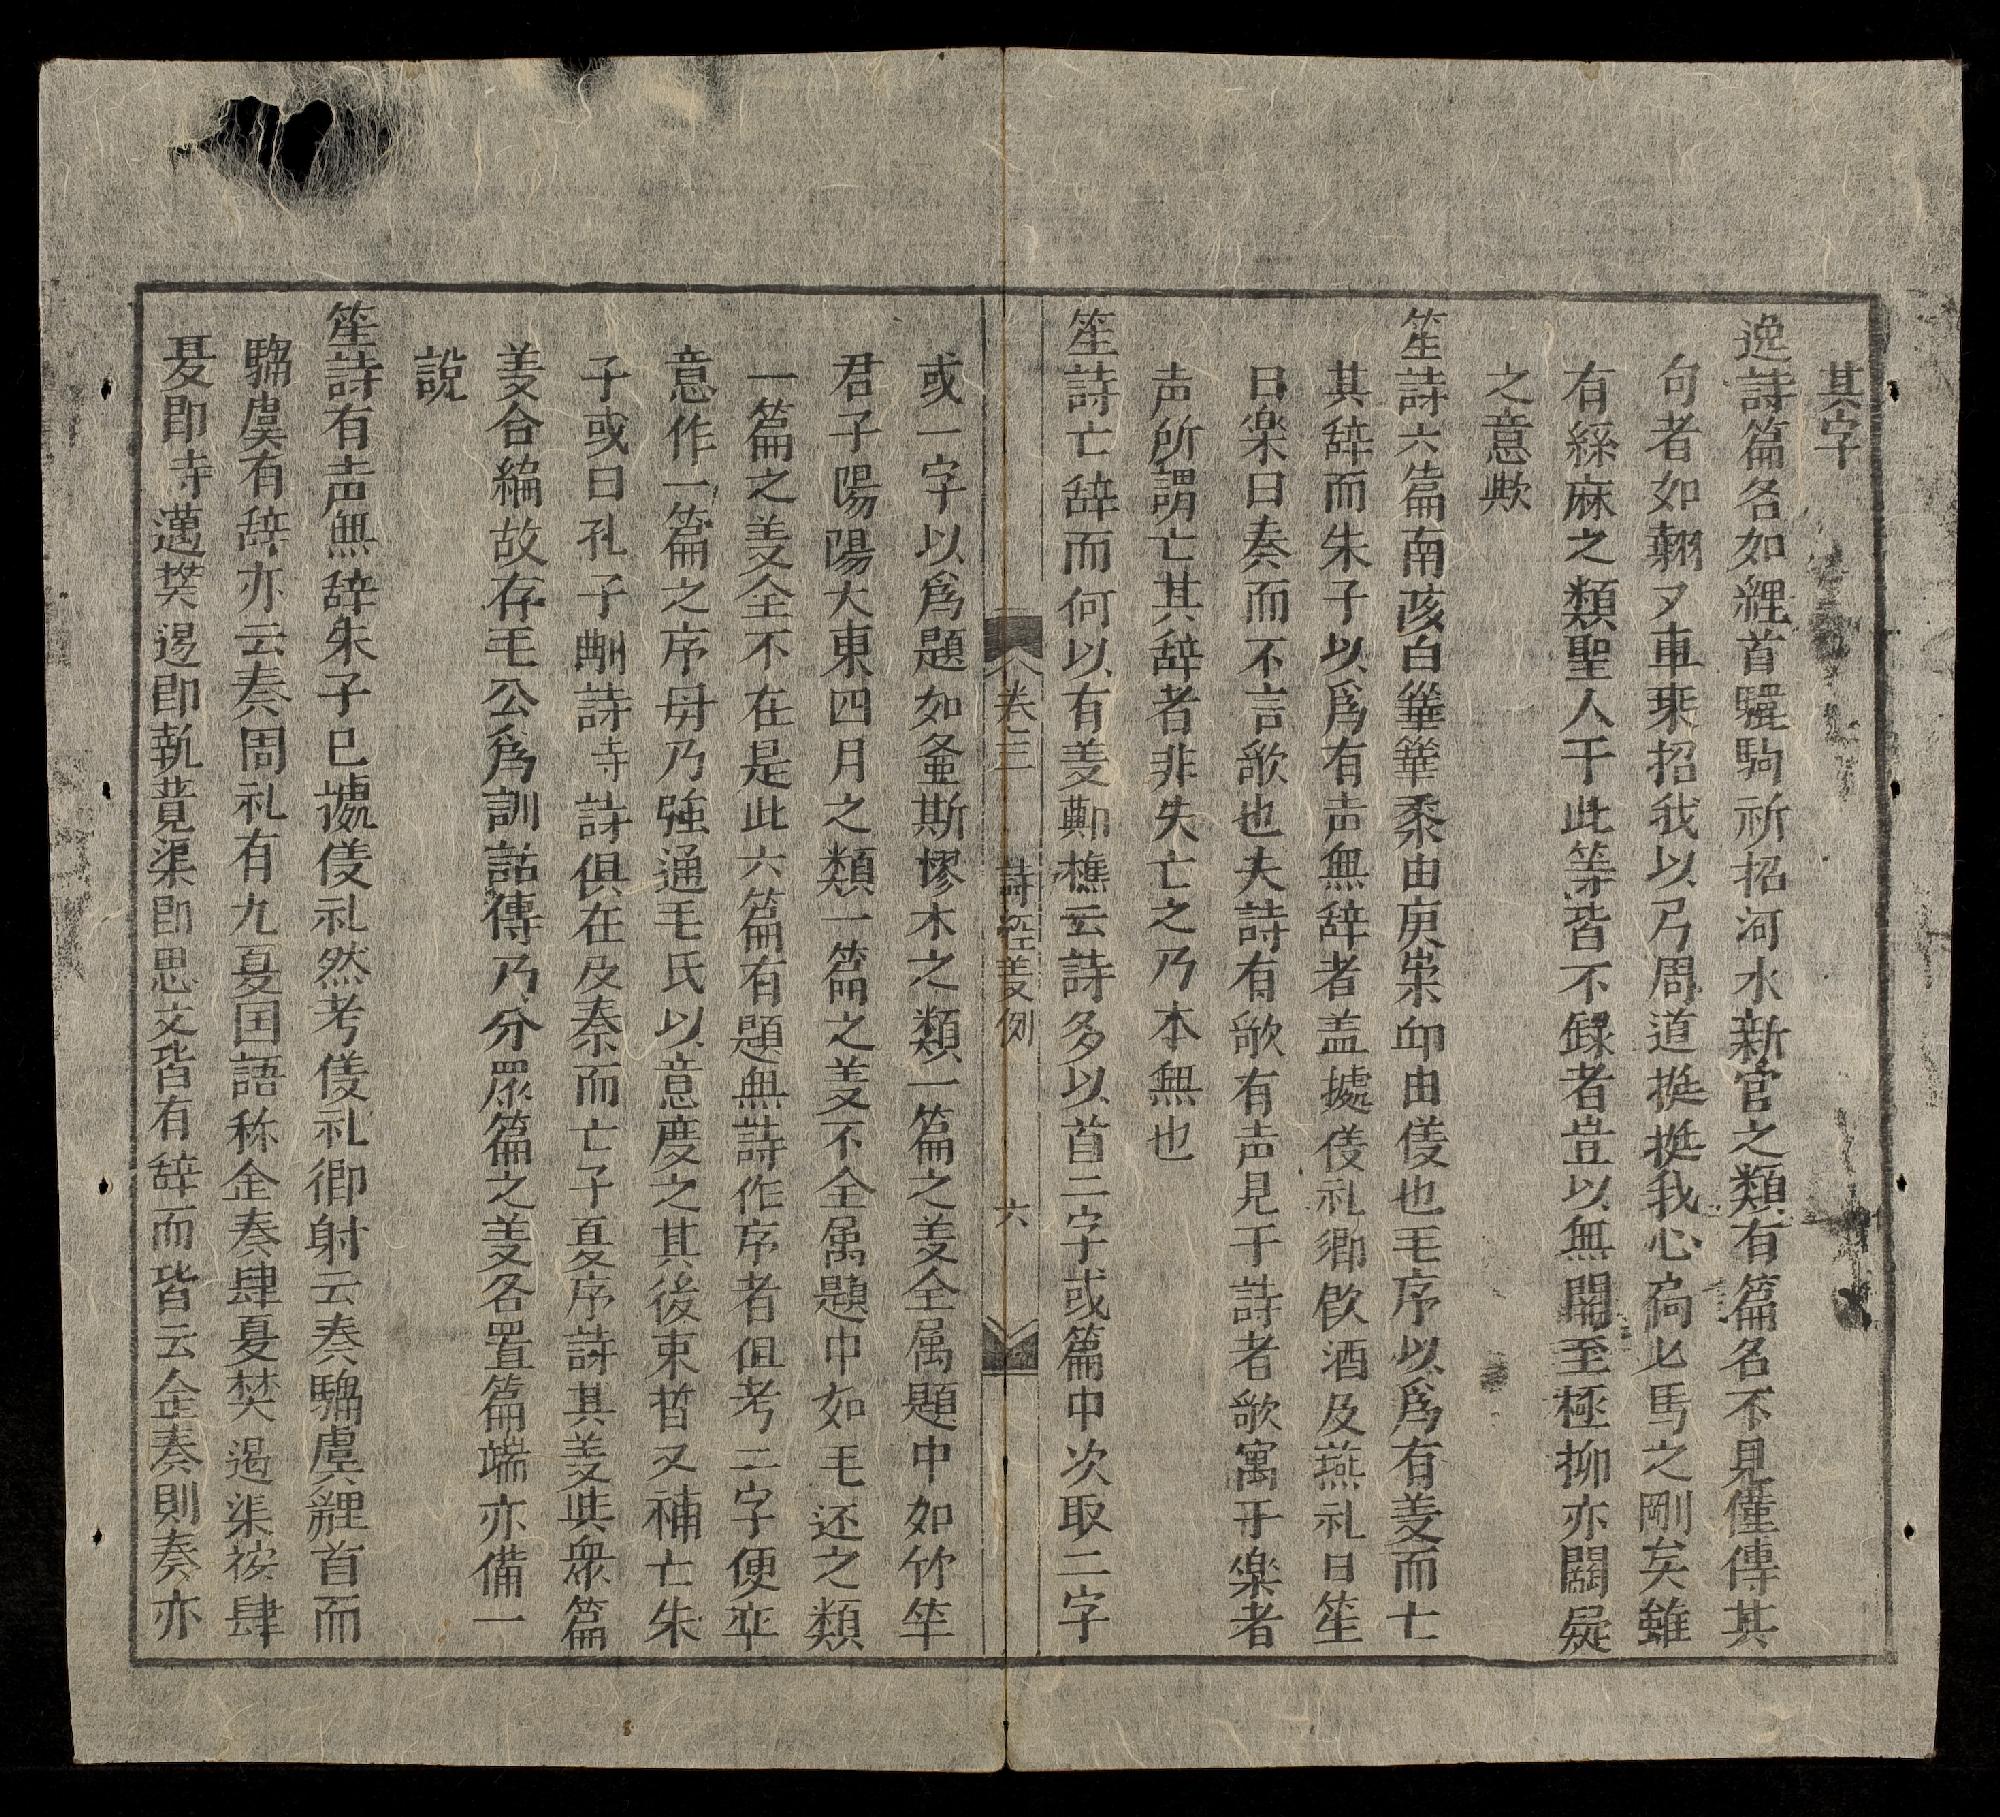 其字
逸詩篇名如貍首驪駒祈招河水新宮之類有篇名不見僅傳其
句者如翹〻車乘招我以弓周道挺挺我心扃〻馬之剛矣雖
有絲麻之類聖人于此等皆不録者豈以無關至極抑亦闕疑
之意歟
笙詩六篇南陔白華華黍由庚崇丘由儀也毛序以爲有義而亡
其辞而朱子以爲有声無辞者盖據儀礼鄉飲酒及燕礼曰笙
曰楽曰奏而不言歌也夫詩有歌有声見于詩者歌寓乎楽者
声所謂亡其辞者非失亡之乃本無也
笙詩亡辞而何以有義鄭樵云詩多以首二字或篇中次取二字
卷三 詩經義例 六
或一字以爲題如螽斯樛木之類一篇之義全属題中如竹竿
君子陽陽大東四月之類一篇之義不全属題中如毛还之類
一篇之義全不在是此六篇有題無詩作序者但考二字便率
意作一篇之序毋乃強通毛氏以意度之其後束晢又補亡朱
子或曰孔子刪詩寺詩俱在及秦而亡子夏序詩其義與衆篇
義合編故存毛公爲訓詁傳乃分眾篇之義各置篇端亦備一
說
笙詩有声無辞朱子已㨿儀礼然考儀礼鄉射云奏騶虞貍首而
騶虞有辞亦云奏周礼有九夏国語称金奏肆夏樊遏渠按肆
夏即寺邁樊遏即執競渠即思文皆有辞而皆云金奏則奏亦